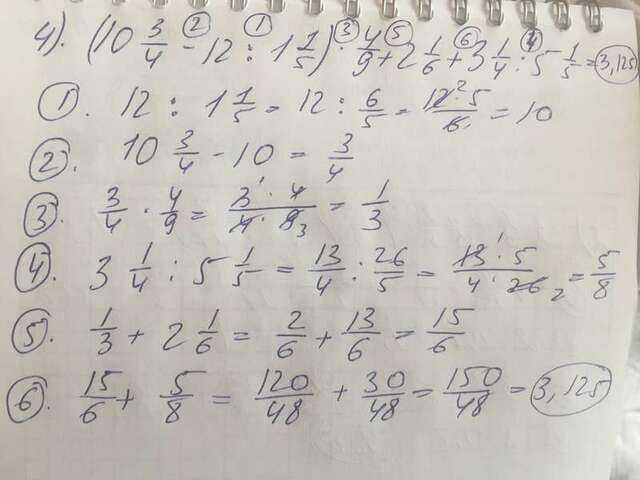 4). (10 3/4 - 12 : 1 1/5) · 4/9 + 2 1/6 + 3 1/4 : 5 1/5 = 3,125
①. 12 : 1 1/5 = 12 : 6/5 = 12·5/6 = 10
②. 10 3/4 - 10 = 3/4
③. 3/4 · 4/9 = 3·4/4·9 = 1/3
④. 3 1/4 : 5 1/5 = 13/4 : 26/5 = 13·5/4·26 = 5/8
⑤. 1/3 + 2 1/6 = 2/6 + 13/6 = 15/6
⑥. 15/6 + 5/8 = 120/48 + 30/48 = 150/48 = 3,125